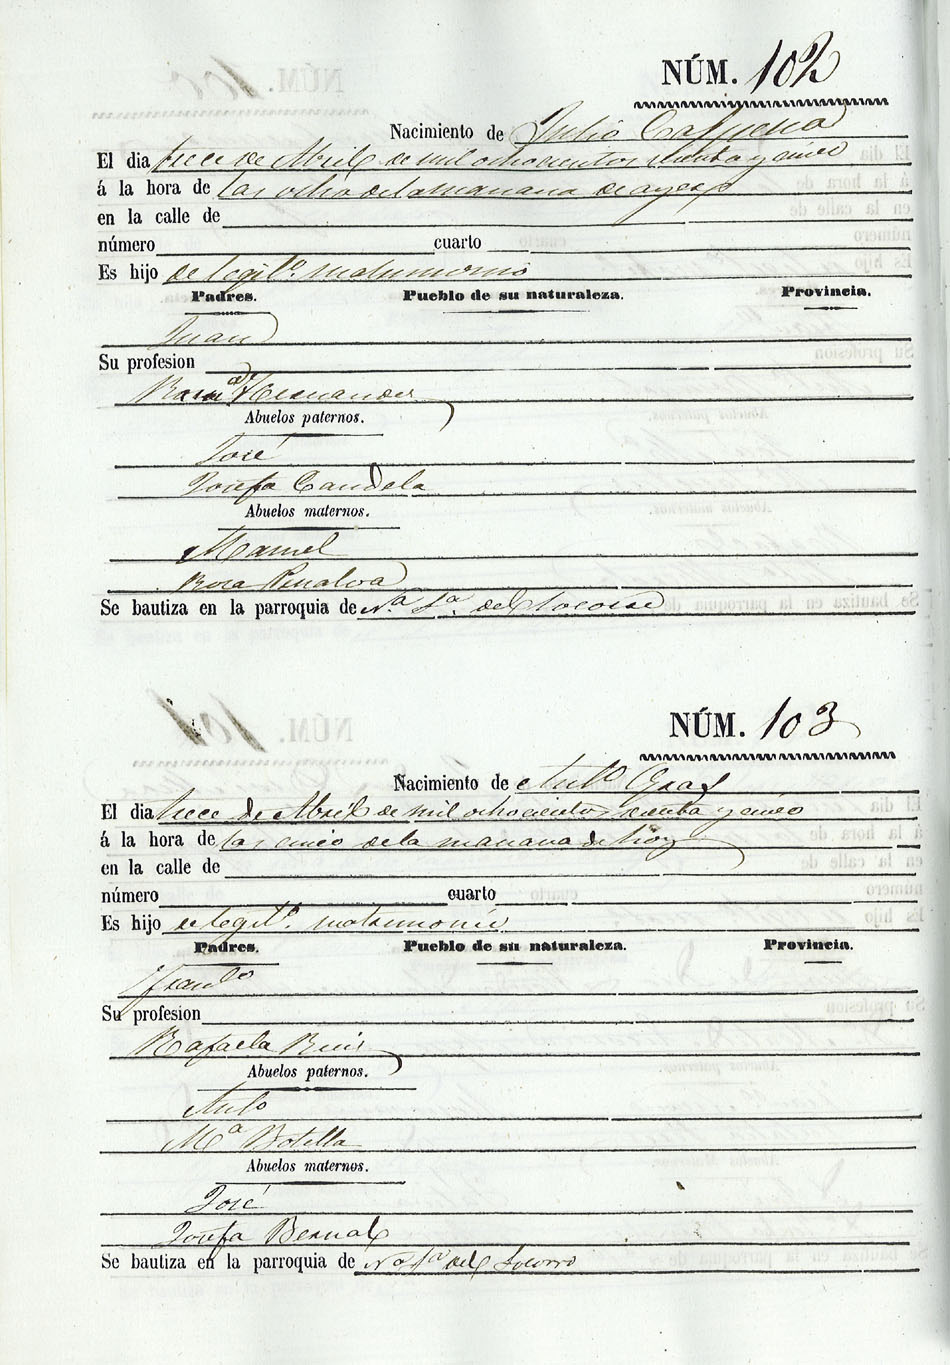 NÚM. 102
Nacimiento de Julio Cañuena
El dia trece de Abril de mil ochocientos senta y cinco
á la hora de las ocho de la mañana de ayer
en la calle de
número cuarto
Es hijo de legit.º matrimonio
Padres. Pueblo de su naturaleza. Provincia.
Juan
Su profesion
Ram.ª Hernandez
Abuelos paternos.
José
Josefa Candela
Abuelos maternos.
Manuel
Rosa Penalva
Se bautiza en la parroquia de N.ª S.ª del Socorro
NÚM. 103
Nacimiento de Ant.º Gras
El dia trece de Abril de mil ochocientos senta y cinco
á la hora de las cinco de la mañana de hoy
en la calle de
número cuarto
Es hijo de legit.º matrimonio
Padres. Pueblo de su naturaleza. Provincia.
Franc.º
Su profesion
Rafaela Ruiz
Abuelos paternos.
Ant.º
M.ª Botella
Abuelos maternos.
José
Josefa Bernal
Se bautiza en la parroquia de N.ª S.ª del Socorro